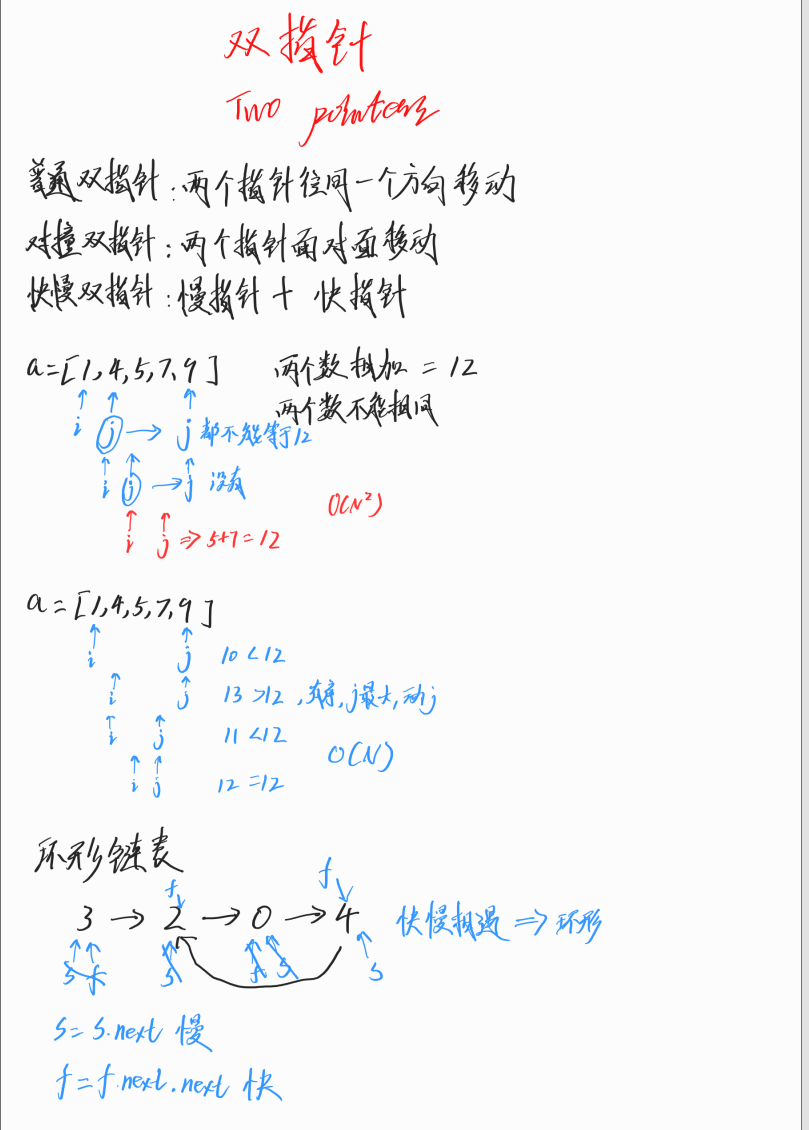 双指针
Two pointers
普通双指针:两个指针往同一个方向移动
对撞双指针:两个指针面对面移动
快慢双指针:慢指针+快指针
a=[1,4,5,7,9] 两个数相加=12
两个数不能相同
i j → j 都不能等于12
i j → j 没有
O(N²)
i j ⇒ 5+7=12
a=[1,4,5,7,9]
i j 10<12
i j 13>12,有序,j最大,动j
i j 11<12
O(N)
i j 12=12
环形链表
f f
3 → 2 → 0 → 4 快慢相遇 ⇒ 环形
s f s f s s
s=s.next 慢
f=f.next.next 快